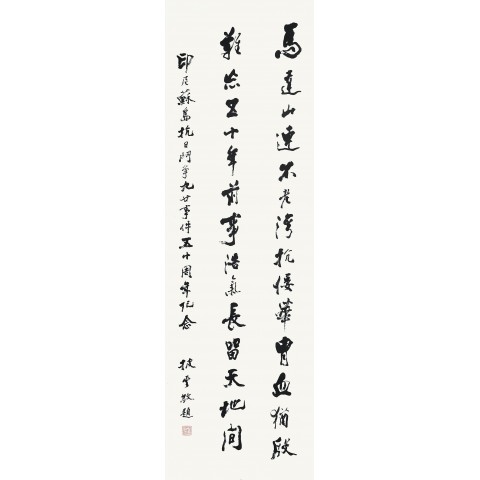 馬達山連不老灣抗倭華胄血猶殷
難忘五十年前事浩氣長留天地間
印尼蘇島抗日鬥爭九廿事件五十周年紀念
披雲敬題